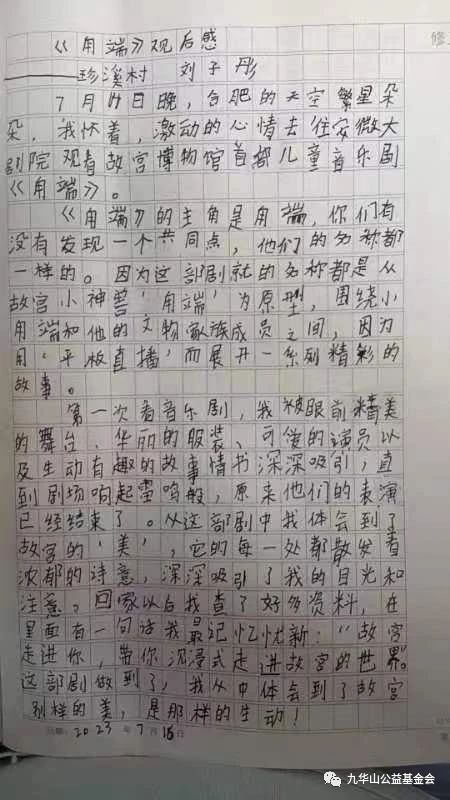 《甪端》观后感
——珍溪村 刘子彤
7月11日晚，合肥的天空繁星朵
朵，我怀着，激动的心情去往安徽大
剧院观看故宫博物馆首部儿童音乐剧
《甪端》。
《甪端》的主角是甪端，你们有
没有发现一个共同点，他们的名称都
一样的。因为这部剧就的名称都是从
故宫小神兽‘甪端’为原型，围绕小
甪端和他的文物家族成员之间，因为
用‘平板直播’而展开一系列精彩的
故事。
第一次看音乐剧，我被眼前精美
的舞台、华丽的服装、可爱的演员以
及生动有趣的故事情书深深吸引，直
到剧场响起雷鸣般，原来他们的表演
已经结束了。从这部剧中我体会到了
故宫的‘美’，它的每一处都散发着
浓郁的诗意，深深吸引了我的目光和
注意。回家以后我查了好多资料，在
里面有一句话我最记忆忧新：“故宫
走进你，带你沉浸式走进故宫的世界。”
这部剧做到了，我从中体会到了故宫
别样的美，是那样的生动！
日期：2023年7月16日
修
九华山公益基金会